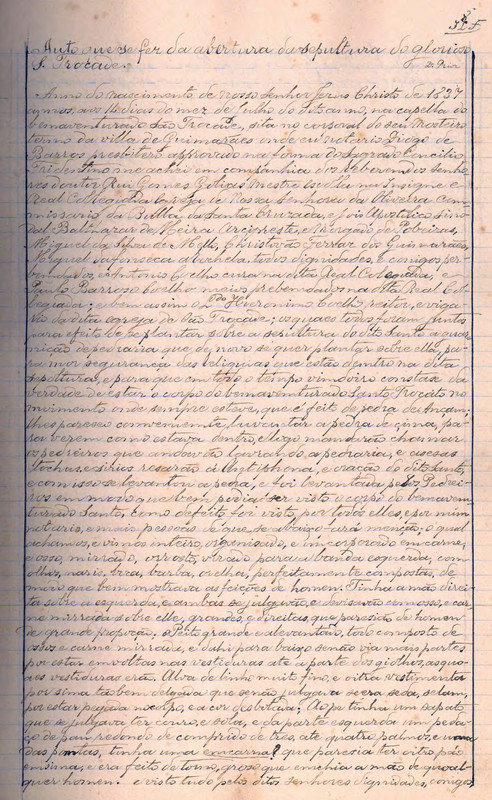 Auto que se fez da abertura da sepultura do glorioso
S. Torcade.
Anno do nascimento de Nosso Senhor Jesus Christo de 1637
annos, aos 14 dias do mez de Julho do dito anno, na capella do
bemaventurado São Torcade, sita no corpo do seu Mosteiro
termo da villa de Guimarães onde eu notario Diogo de
Barros presbitero approvado na forma do sagrado Concilio
Tridentino me achei em companhia dos Reverendos Senho-
res doutor Ruy Gomes Golias Mestre escolla na Insigne e
Real Collegiada da Igreja de Nossa Senhora da Oliveira com-
missario da Bulla da Santa Cruzada, e Juis Apostolico Sino-
dal Balthazar de Meira Arcipreste, e Morgado de Pobeiras,
Miguel da Silva de Mello, Christovão Ferraz dos Guimarães,
Miguel da Fonseca todos dignidades, e conigos pre-
bendados, e Antonio Coelho cura na dita Real Colegiada, e
Paulo Barroso Coelho meios prebendados na dita Real Col-
legiada; e bem assim o Jeronimo Coelho, reitor, e viga-
rio da dita egreja de São Torcade; os quaes todos foram juntos
para efeito de se plantar sobre a sepultura do dito Santo a guar-
nição de pedraria que de novo se quer plantar sobre ella, pa-
ra mor segurança das reliquias que estão dentro na dita
sepultura, e para que em todo o tempo vindoiro constase da
verdade de estar o corpo do bemaventurado Santo Torcato no
moimento onde sempre esteve, que é feito de pedra de Ançam,
lhes pareseo conveniente, levantar a pedra de cima, pa-
ra verem como estava dentro, e logo mandarão chamar
os pedreiros que andavão lavrando a pedraria, e acesas
tochas, e sirios resarão a Antiphona, e oração do dito Santo,
e com isso se levantou a pedra, e foi levantada pelos Pedrei-
ros em modo que bem podia ser visto o corpo do bemaven-
turado Santo, como de feito foi visto, por todos elles, e por mim
notario, e mais pessoas de que se abaixo fará menção; o qual
achamos, e vimos inteiro, organisado, e incorporado em carne,
e osso, mirrado, o rosto, virado para a banda esquerda, com
olhos, naris, boca, barba, orelha, perfeitamente compostas, de
modo que bem mostrava as feições de homem. Tinha a mão direi-
ta sobre a esquerda, e ambas se julgavão, e devisavão com osso, e car-
ne mirrada sobre elle, grandes, e direitas, que paresião de homem
de grande proporção. O Peito grande e alevantado, todo composto de
osso e carne mirrada, e dahi para baixo senão via mais partes
por estar em voltas nas vestiduras até a parte dos giolhos, as qu-
aes vestiduras erão. Alva de linho muit fino, e oitra vestimenta
por sima tão bem delgada que senão julgava se era seda, se lam,
por estar pegada no corpo, e a cor desbotada; Ao pe tinha um sapato
que se julgava ter couro, e sola, e da parte esquerda um peda-
ço de pau redondo de comprido de tres, até quatro palmos, e uma
das pontas, tinha uma encarna? que paresia ter oitro páo
em sima, e era feito de torno, groso que enchia a mão de qual-
quer homem. e visto tudo pelos ditos senhores dignidades, conigos